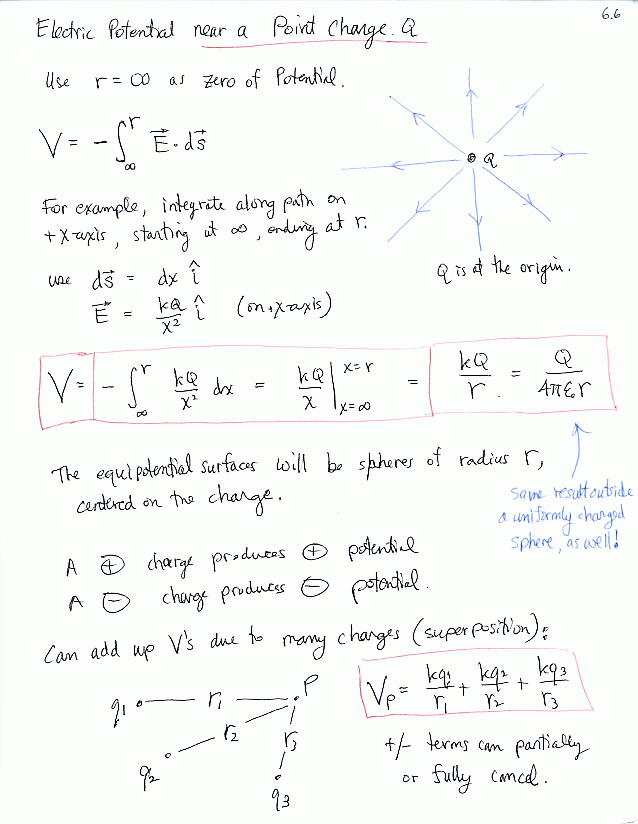 6.6
Electric Potential near a Point Charge. Q
Use r = ∞ as zero of Potential.
V = - ∫_∞^r E⃗ · ds⃗
Q
For example, integrate along path on
+x-axis, starting at ∞, ending at r.
Q is at the origin.
use ds⃗ = dx î
E⃗ = kQ/x² î (on +x-axis)
V = - ∫_∞^r kQ/x² dx = kQ/x |_{x=∞}^{x=r} = kQ/r. = Q/4πε₀r
The equipotential surfaces will be spheres of radius r,
centered on the charge.
same result outside
a uniformly charged
sphere, as well!
A ⊕ charge produces ⊕ potential
A ⊖ charge produces ⊖ potential.
Can add up V's due to many charges (superposition):
q₁ r₁ P
r₂
r₃
q₂
q₃
V_P = kq₁/r₁ + kq₂/r₂ + kq₃/r₃
+/- terms can partially
or fully cancel.